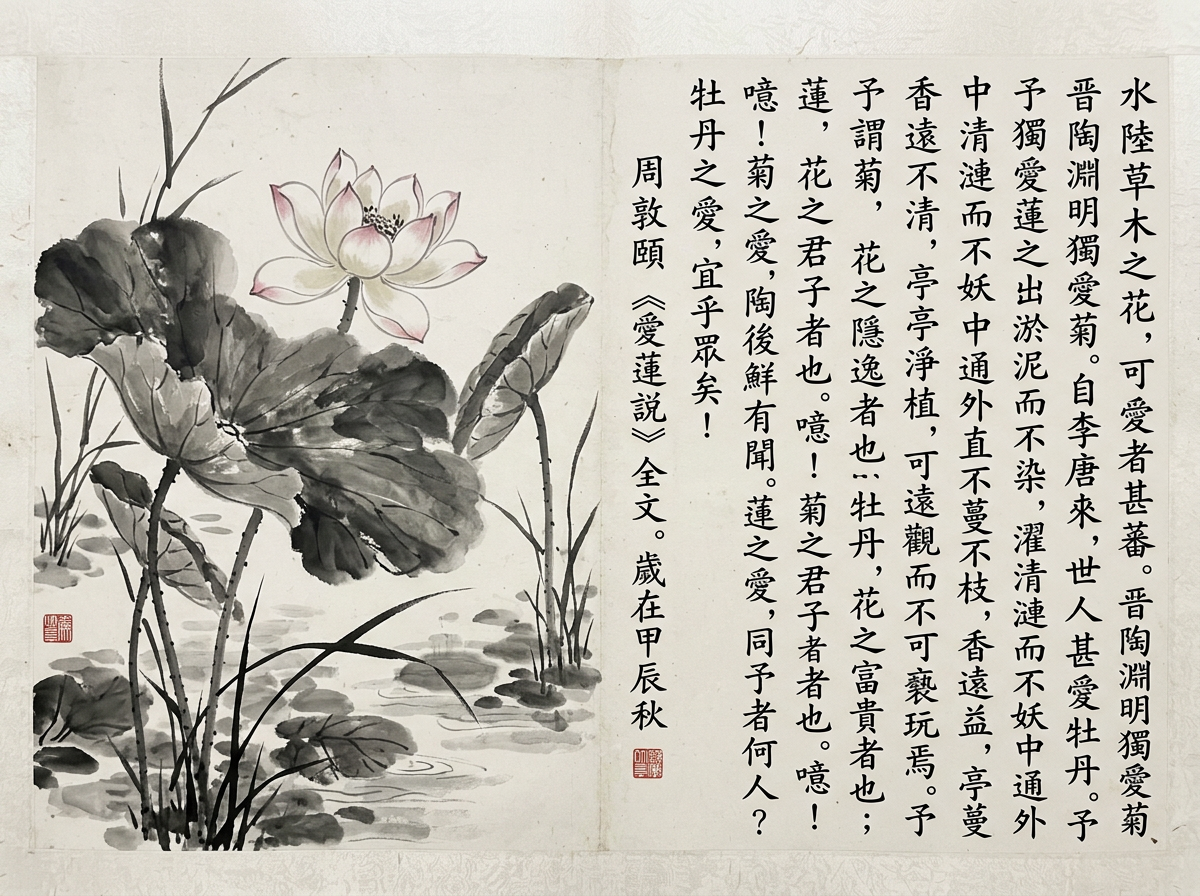 水陸草木之花，可愛者甚蕃。晋陶淵明獨愛菊、
晋陶淵明獨愛菊。自李唐來，世人甚愛牡丹。予
予獨愛蓮之出淤泥而不染，濯清漣而不妖中通外
中清漣而不妖中通外直不蔓不枝，香遠益，亭蔓
香遠不清，亭亭淨植，可遠觀而不可褻玩焉。予
予謂菊，花之隱逸者也…牡丹，花之富貴者也；
蓮，花之君子者也。噫！菊之君子者者也。噫！
噫！菊之愛，陶後鮮有聞。蓮之愛，同予者何人？
牡丹之愛，宜乎眾矣！
周敦頤《愛蓮説》全文。歲在甲辰秋